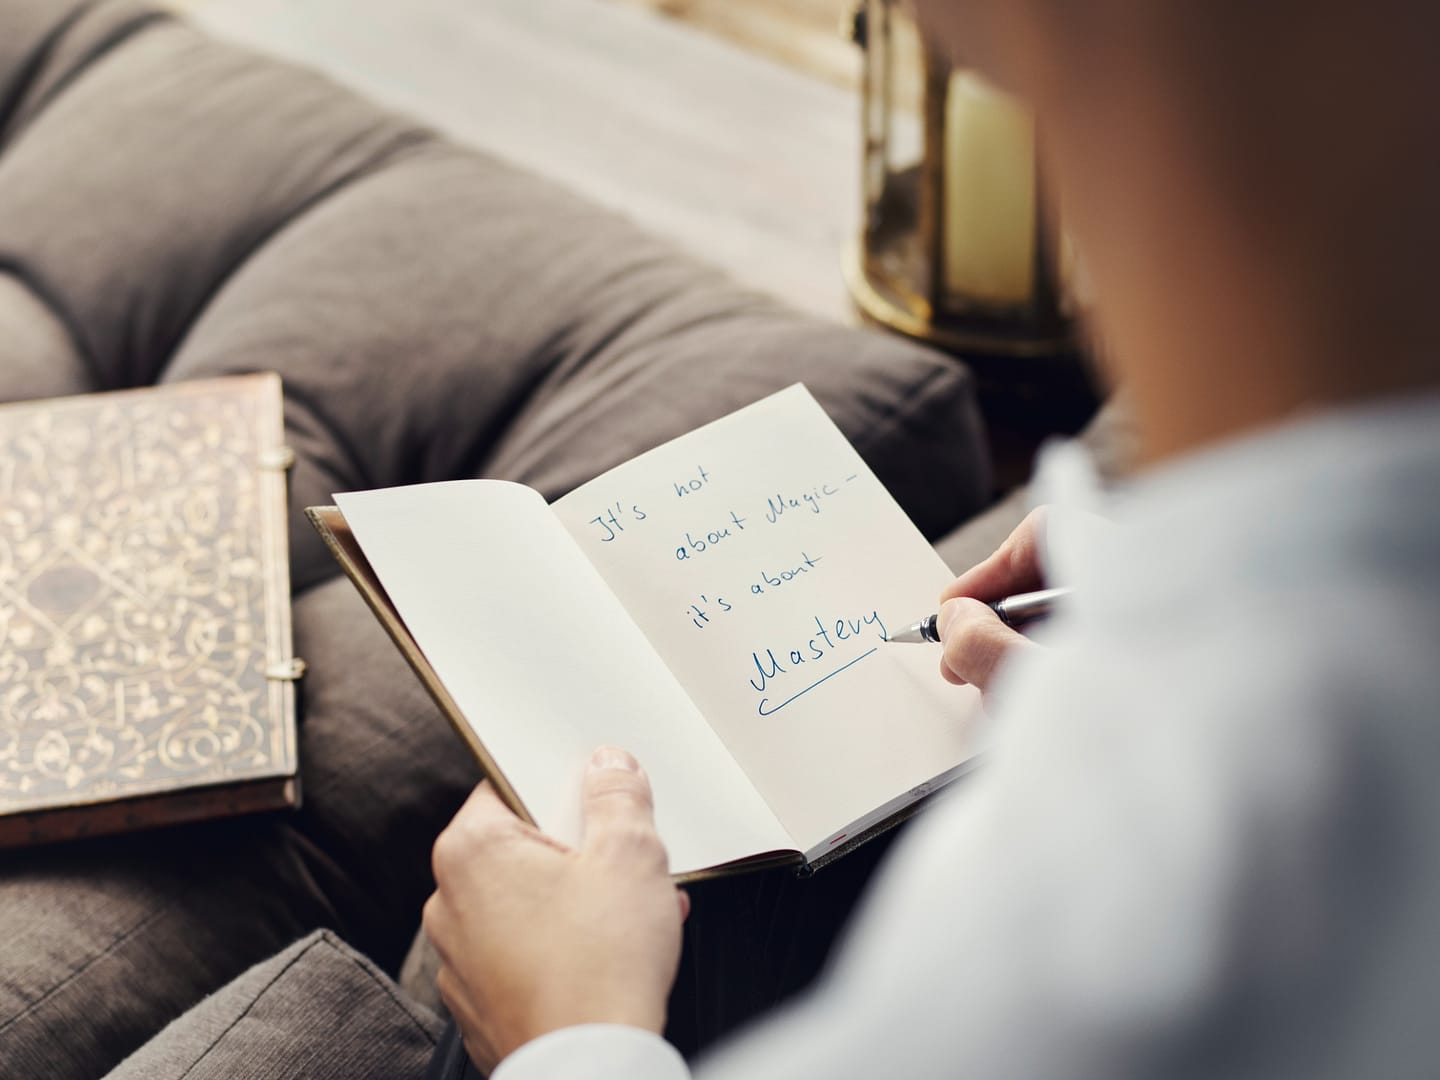 It's not
about Magic -
it's about
Mastery